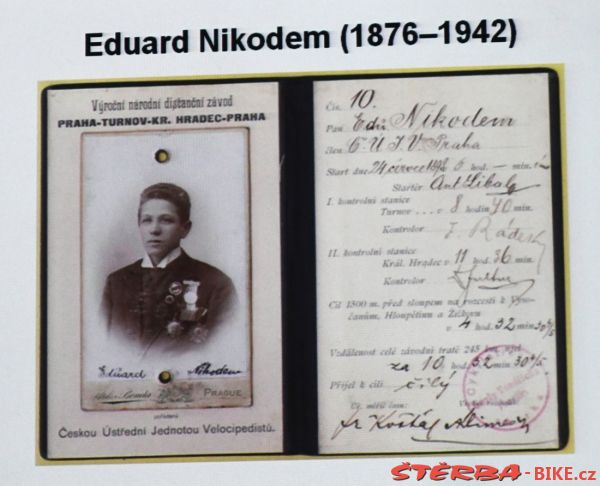 Eduard Nikodem (1876–1942)
Výroční národní distanční závod
PRAHA-TURNOV-KR. HRADEC-PRAHA
Eduard Nikodem
PRAGUE
pořádaný
Českou Ústřední Jednotou Velocipedistů.
Čís. 10.
Pan Edú. Nikodem
Člen Č. Ú. J. V. Praha
Start dne 24 července 6 hod. – min.
Startér Ant. Líbal
I. kontrolní stanice
Turnov . . . v 8 hodin 40 min.
Kontrolor
II. kontrolní stanice
Král. Hradec v 11 hod. 36 min.
Kontrolor
Cíl 1500 m. před sloupem na rozcestí k Vyso-
čanům, Hloupětínu a Žižkovu
v 4 hod. 32 min 30 4/5
Vzdálenost celé závodní tratě 245 km. ujel
za 10 hod. 52 min. 30 4/5
Přijel k cíli čilý
Čl. měřiči času:
fr. Košťál
ŠTĚRBA-BIKE.cz